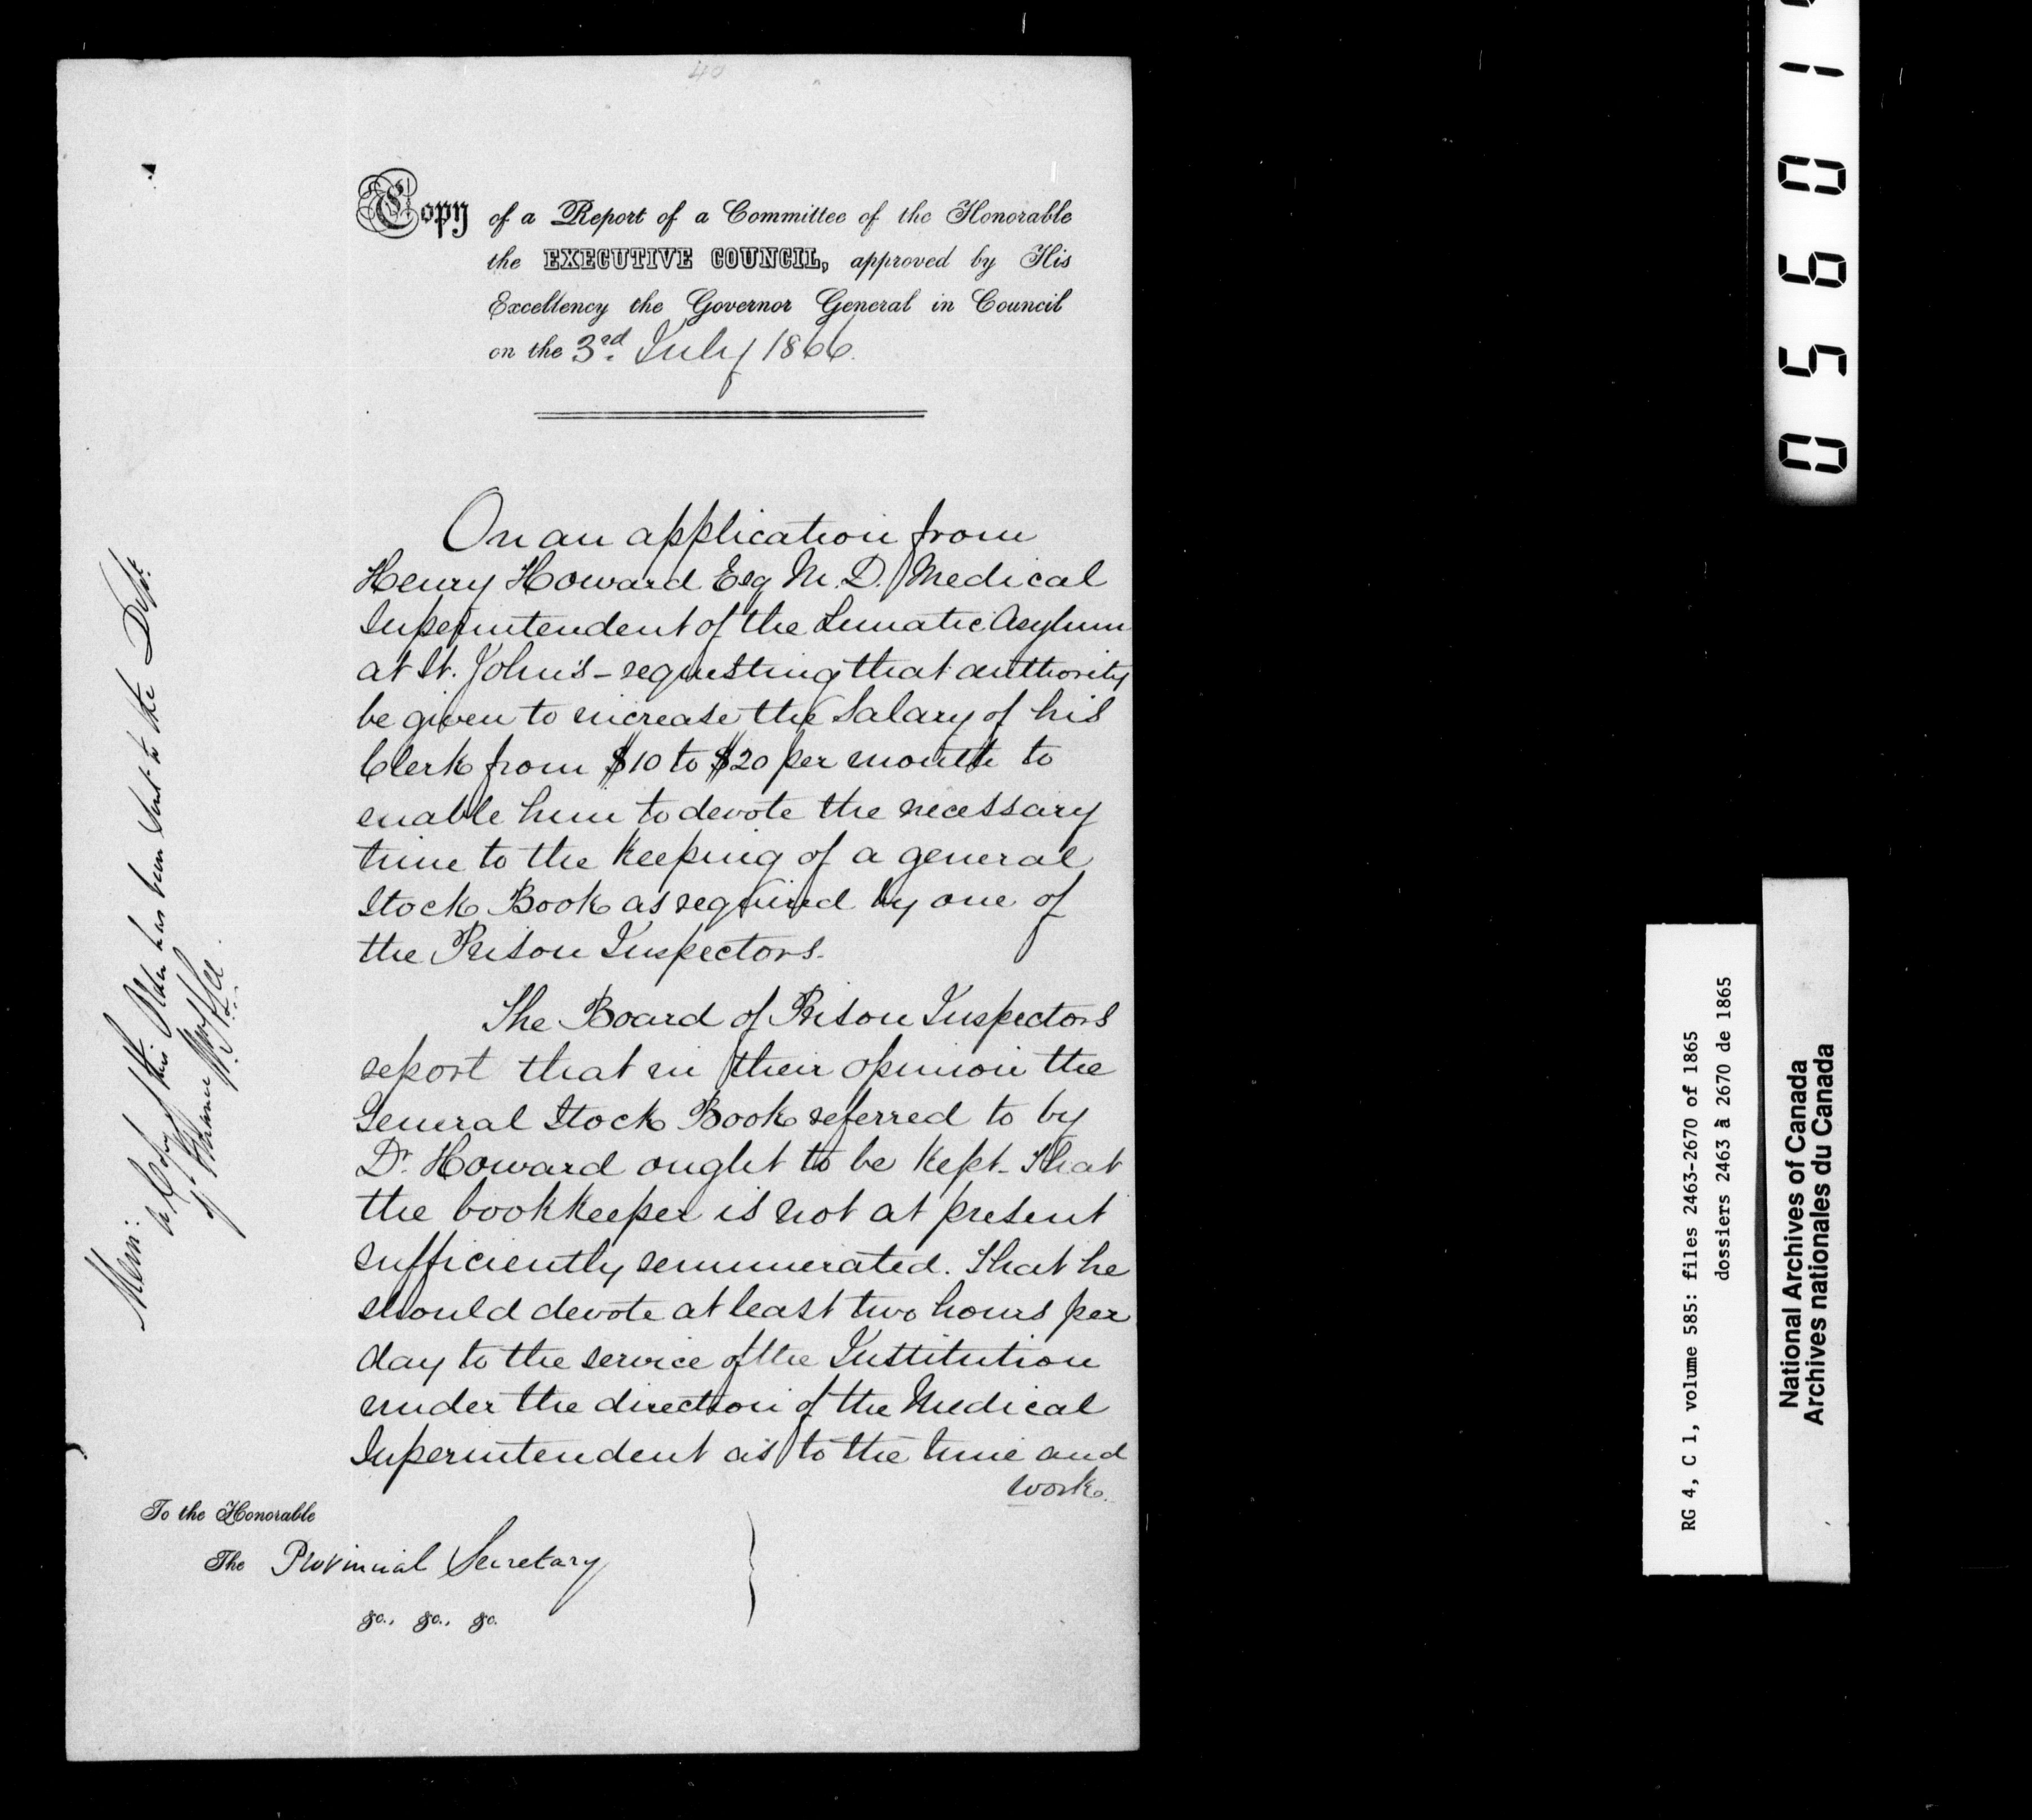 40
Copy of a Report of a Committee of the Honorable
the EXECUTIVE COUNCIL, approved by His
Excellency the Governor General in Council
on the 3rd July 1866.
On an application from
Henry Howard Esq M.D. Medical
Superintendent of the Lunatic Asylum
at St. John's - requesting that authority
be given to increase the Salary of his
Clerk from $10 to $20 per month to
enable him to devote the necessary
time to the keeping of a general
Stock Book as required by one of
the Prison Inspectors.
The Board of Prison Inspectors
report that in their opinion the
General Stock Book referred to by
Dr. Howard ought to be kept - That
the bookkeeper is not at present
sufficiently remunerated. That he
should devote at least two hours per
day to the service of the Institution
under the direction of the Medical
Superintendent as to the time and
work.
To the Honorable
The Provincial Secretary
&c., &c., &c.
Mem:
a Copy of this Order has been sent to the Dept.
of Finance
05601
RG 4, C 1, volume 585: files 2463-2670 of 1865
dossiers 2463 à 2670 de 1865
National Archives of Canada
Archives nationales du Canada